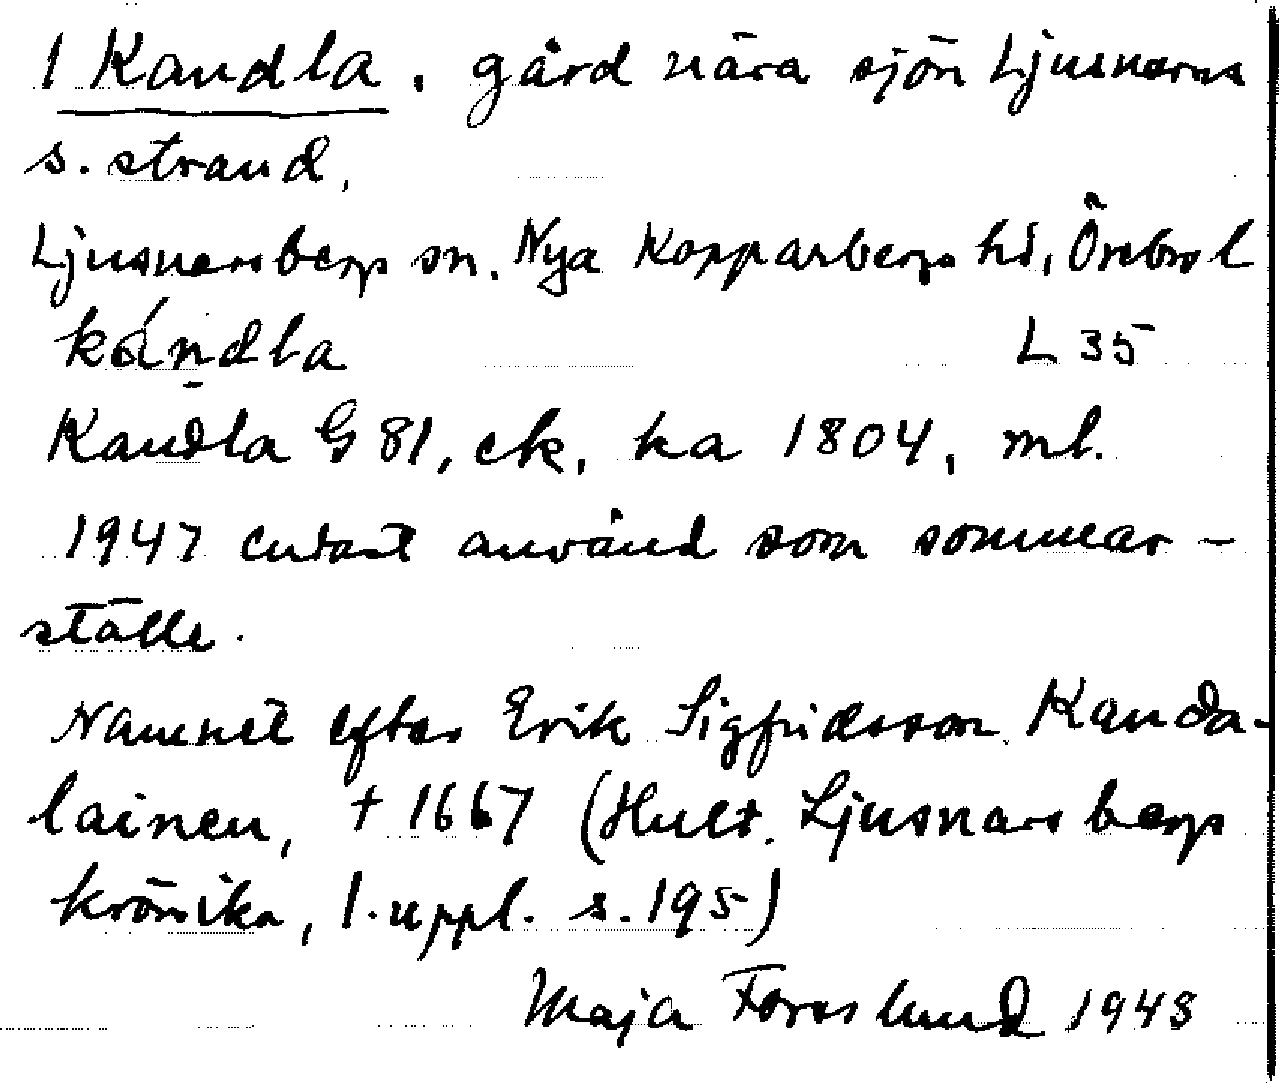 1 Kandla, gård nära sjön Ljusnarns
s. strand,
Ljusnarsbergs sn. Nya Kopparbergs hd, Örebro l
kándla L 35
Kandla G 81, ek. ka 1804, ml.
1947 endast använd som sommar-
ställe.
Namnet efter Erik Sigfridsson Kanda-
lainen, † 1667 (Hult. Ljusnarsbergs
krönika, 1. uppl. s. 195)
Maja Forslund 1948